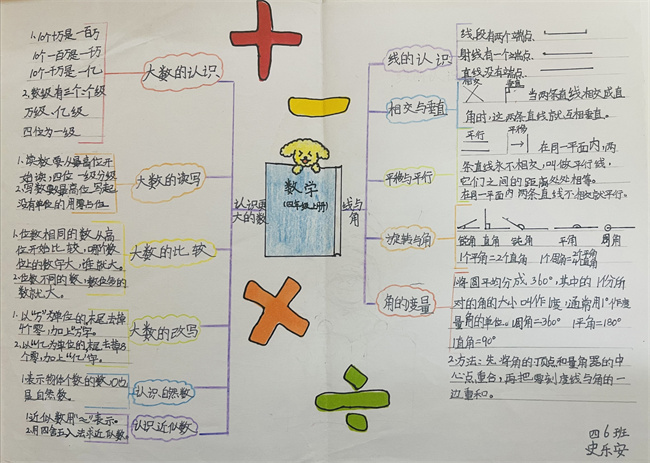 1.10个十万是一百万
10个一百万是一千万
10个一千万是一亿
2.数级有三个:个级
万级、亿级
四位为一级
大数的认识
1.读数要从最高位开
始读,四位一级分级
2.写数数最高位写起
没有单位的用零占位
大数的读写
1.位数相同的数从高
位开始比较,哪个数
位上的数字大,谁就大。
2.位数不同的数,数位多的
数就大。
大数的比较
1.以"万"为单位的末尾去掉
4个零,加上"万"字。
2.以"亿"为单位的末尾去掉8
个零,加上"亿"字。
大数的改写
1.表示物体个数的数,0也
是自然数。
认识自然数
1.近似数用"≈"表示。
2.用四舍五入法求近似数。
认识近似数
认识更
大的数
数学
(四年级上册)
线与
角
线的认识
线段有两个端点
射线有一个端点
直线没有端点
相交与垂直
相交
垂直
当两条直线相交成直
角时,这两条直线就互相垂直。
平移与平行
平行
平移
在同一平面内,两
条直线永不相交,叫做平行线,
它们之间的距离处处相等。
在同一平面内两条直线不相交就平行。
旋转与角
锐角 直角 钝角 平角 周角
1个平角=2个直角 1个周角=2个平角
4个直角
角的度量
1.将圆平均分成360°,其中的1份所
对的角的大小叫作1度,通常用1°作度
量角的单位。周角=360° 1平角=180°
1直角=90°
2.方法:先将角的顶点和量角器的中
心点重合,再把零刻度线与角的一
边重和。
四6班
史乐安